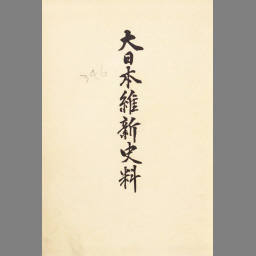 大日本維新史料